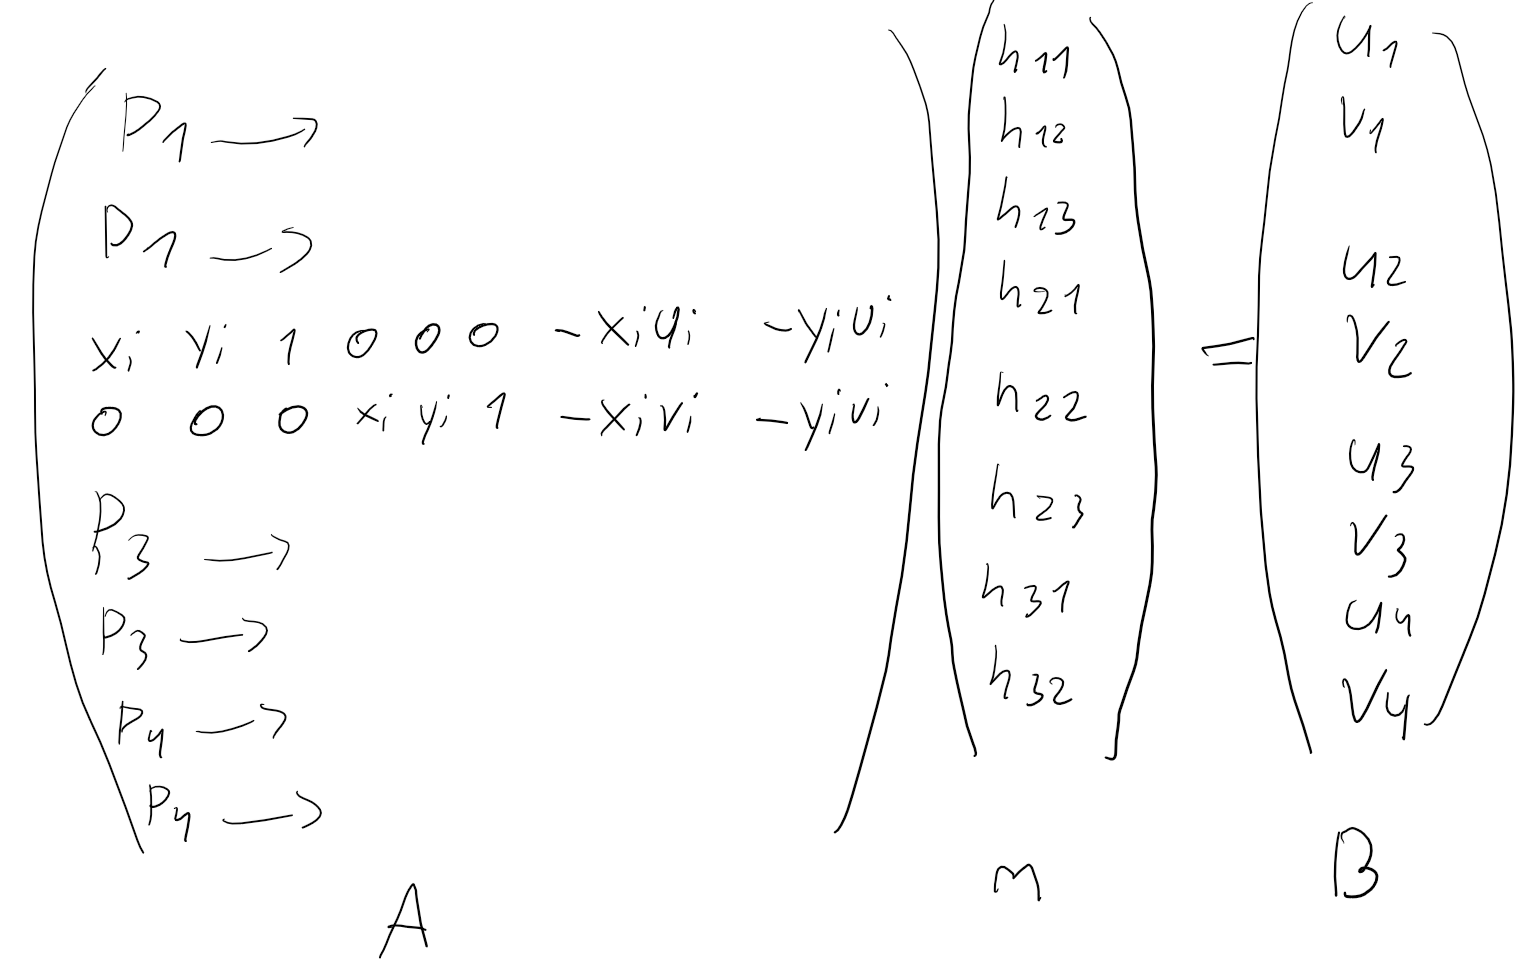 P1 →
P1 →
xi yi 1 0 0 0 -xiui -yiui
0 0 0 xi yi 1 -xivi -yivi
P3 →
P3 →
P4 →
P4 →
A
h11
h12
h13
h21
h22
h23
h31
h32
m
=
u1
v1
u2
v2
u3
v3
u4
v4
B